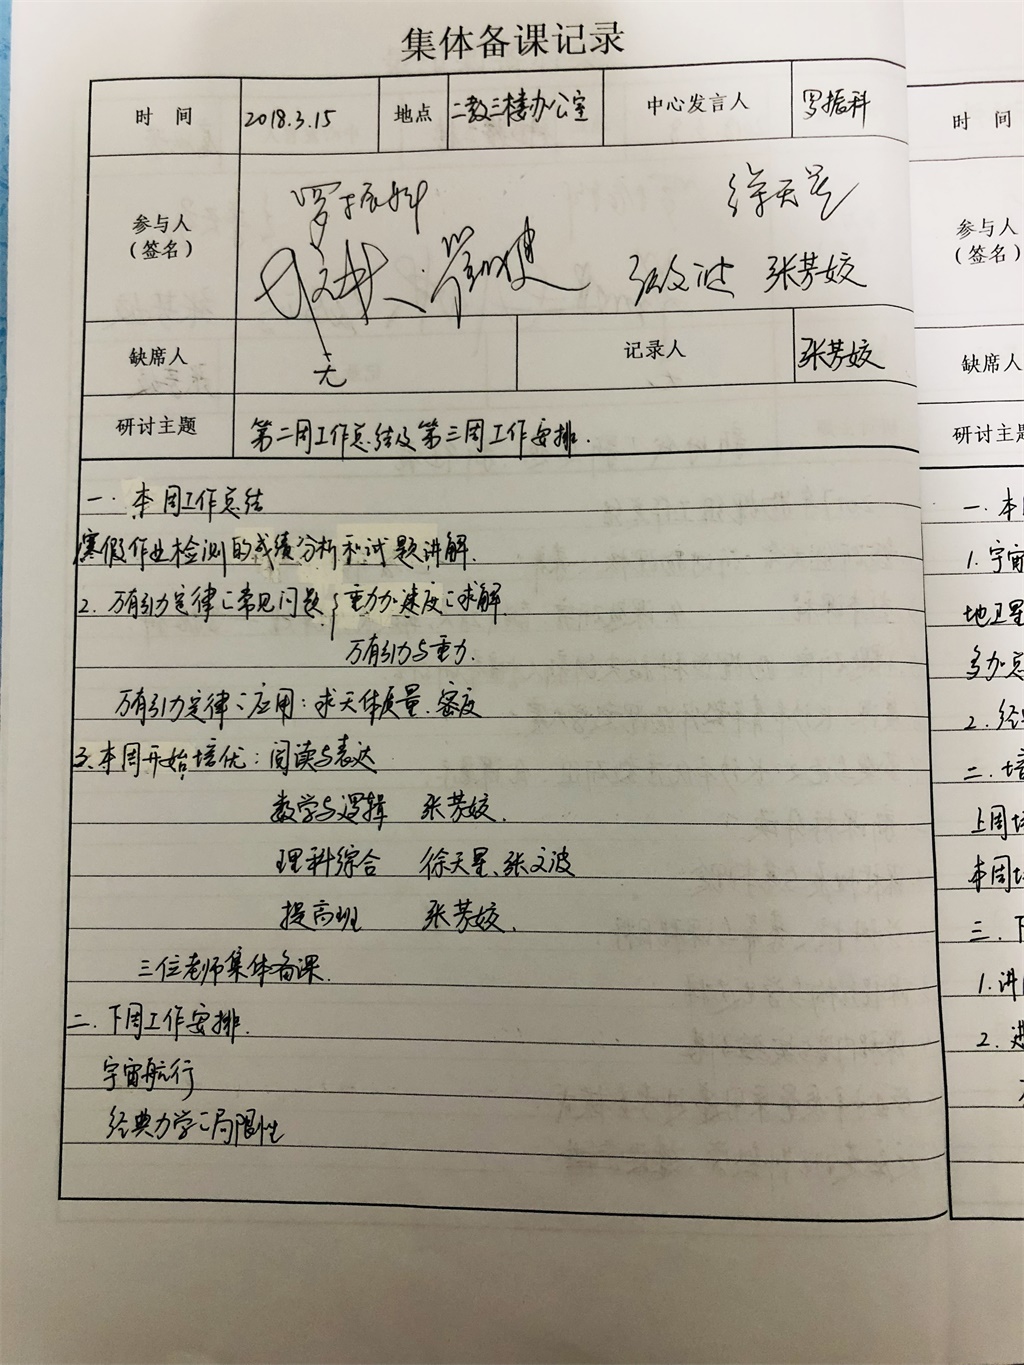 集体备课记录
时 间 2018.3.15 地点 二教三楼办公室 中心发言人 罗振科
参与人
(签名)
罗振科 徐天星
张文波 张芳姣
缺席人 无 记录人 张芳姣
研讨主题 第二周工作总结及第三周工作安排.
一. 本周工作总结
寒假作业检测的成绩分析和试题讲解.
2. 万有引力定律の常见问题 { 重力加速度の求解
万有引力与重力.
万有引力定律の应用:求天体质量.密度
3.本周开始培优:阅读与表达
数学与逻辑 张芳姣.
理科综合 徐天星、张文波
提高班 张芳姣.
三位老师集体备课.
二. 下周工作安排.
宇宙航行
经典力学の局限性
时 间
参与人
(签名)
缺席人
研讨主题
一.本
1.宇宙
地卫星
2.经
二.培
上周培
本周培
三.下
1.讲
2.